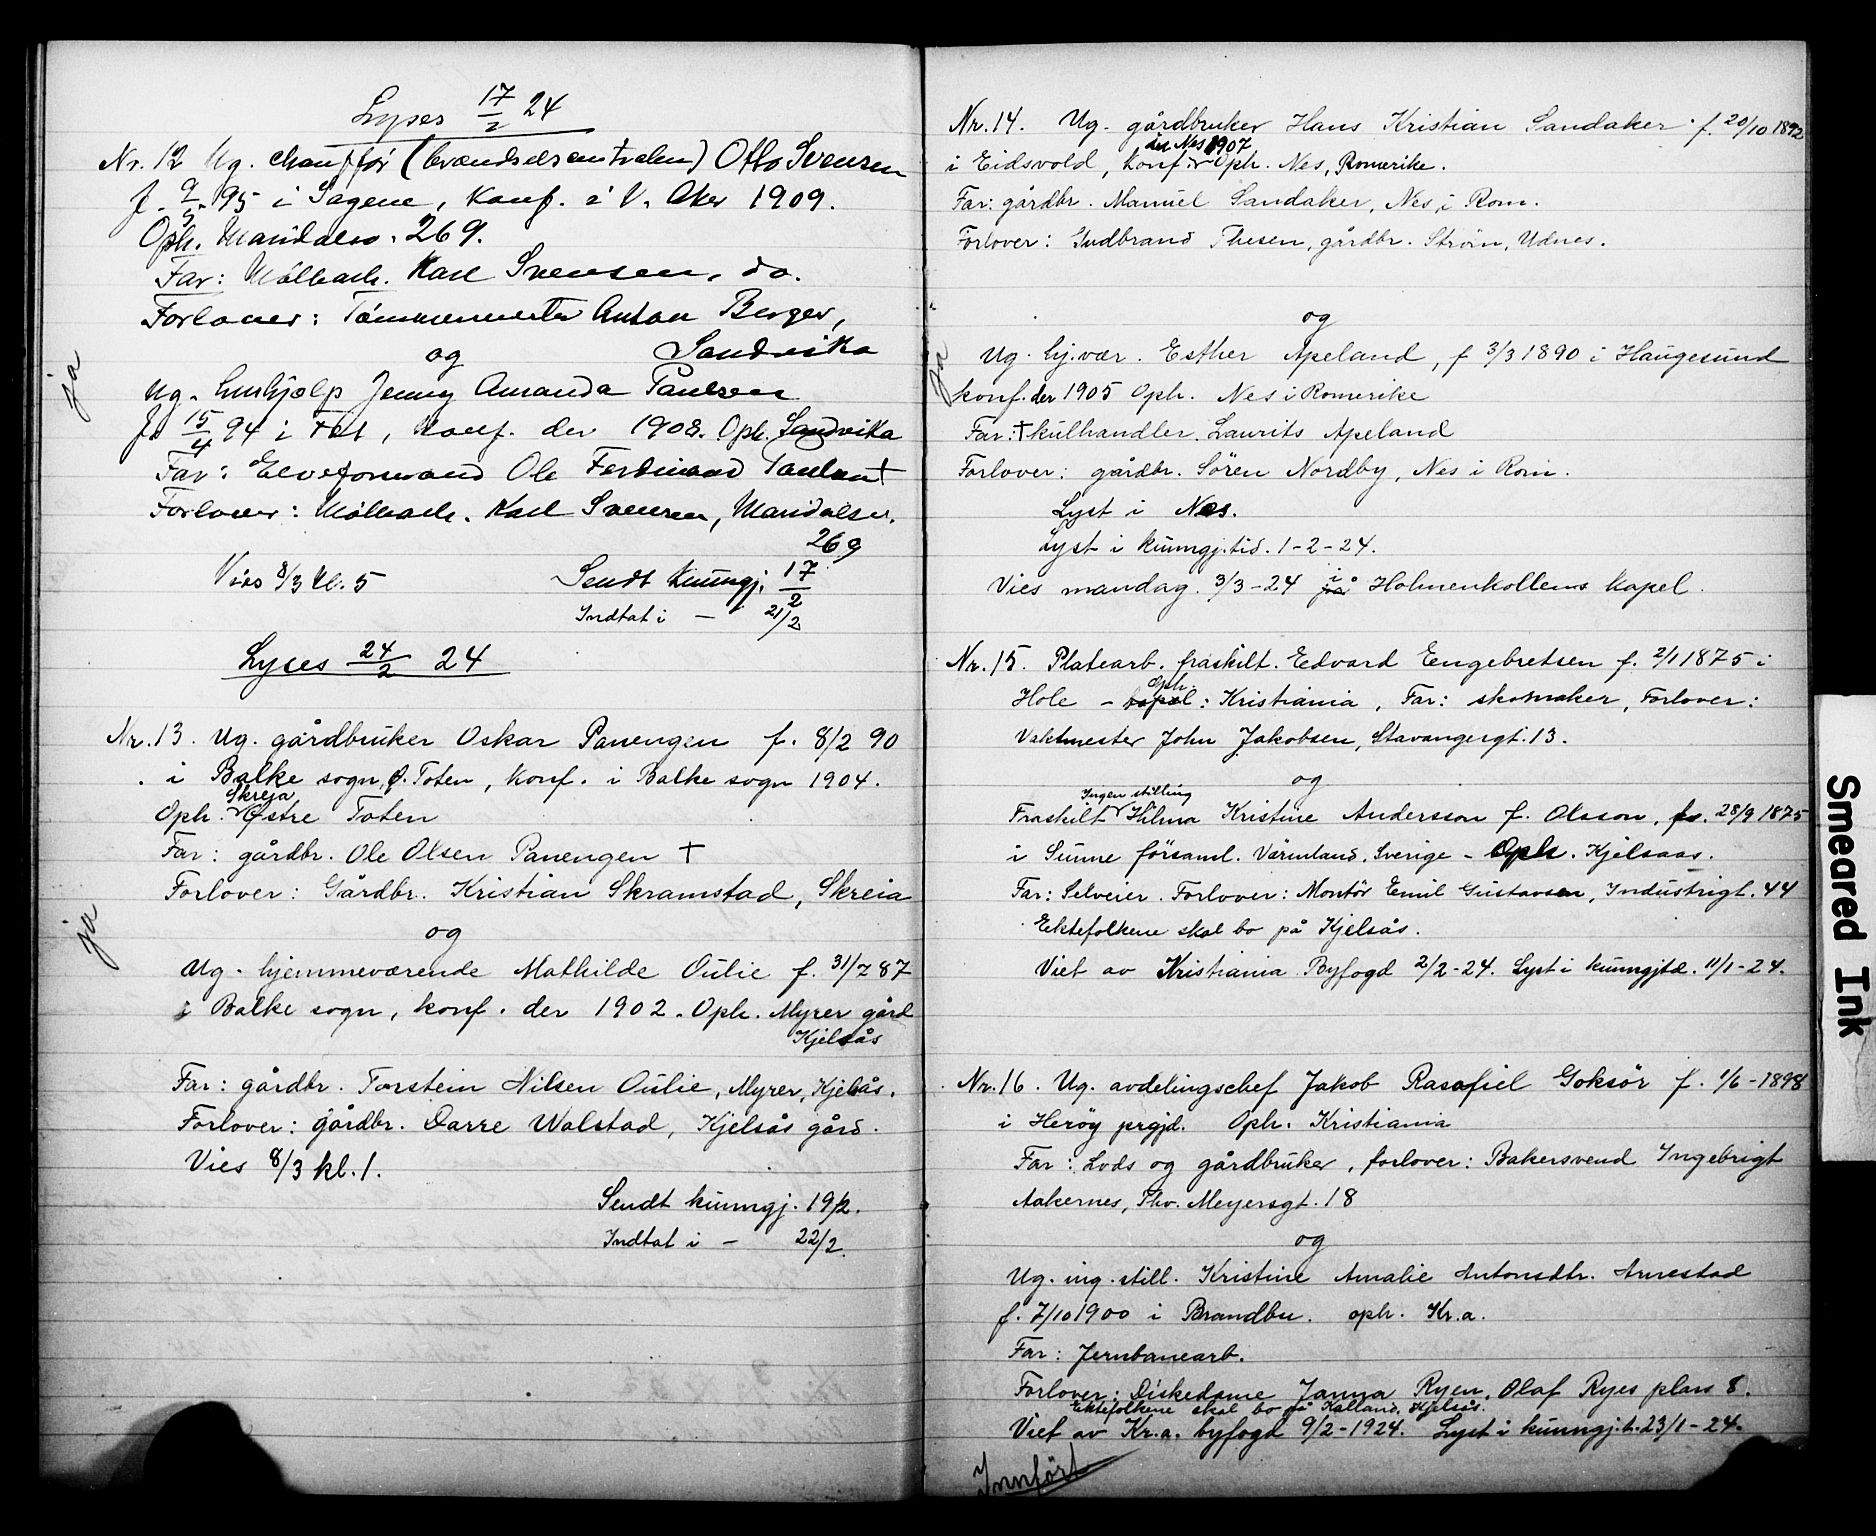 Lyses 17/2 24
Nr. 12 Ug. chaufför (brændselscentralen) Otto Svensen
f. 9/5 95 i Sagene, konf. i V. Aker 1909.
Oph. Maridalsv. 269.
Far: Möllearb. Karl Svensen, do.
Forlover: Tömmermester Anton Berger,
Sandvika
og
ja
Ug. hushjælp Jenny Amanda Paulsen
f. 15/4 94 i Fet, konf. der 1908. Oph. Sandvika
Far: Elveformand Ole Ferdinand Paulsen †
Forlover: Möllearb. Karl Svensen, Maridalsv.
269
Vies 8/3 kl. 5 Sendt kunngj. 17/2
Indtat i — 21/2
Lyses 24/2 24
Nr. 13. Ug. gårdbruker Oskar Panengen f. 8/2 90
i Balke sogn, Ö. Toten, konf. i Balke sogn 1904.
Skreia
Oph. Østre Toten
Far: gårdbr. Ole Olsen Panengen †
Forlover: Gårdbr. Kristian Skramstad, Skreia
ja
og
Ug. hjemmeværende Mathilde Oulie f. 31/7 87
i Balke sogn, konf. der 1902. Oph. Myrer gård
Kjelsås
Far: gårdbr. Torstein Nilsen Oulie, Myrer, Kjelsås.
Forlover: gårdbr. Darre Wolstad, Kjelsås gård.
Vies 8/3 kl. 1.
Sendt kunngj. 19/2.
Indtat i — 22/2.
Nr. 14. Ug. gårdbruker Hans Kristian Sandaker f. 20/10 1892
Nes 1907
i Eidsvold, konf. Oph. Nes, Romerike.
Far: gårdbr. Manuel Sandaker, Nes i Rom.
Forlover: Gudbrand Thesen, gårdbr. Ström, Udnes.
og
ja
Ug. hj.vær. Esther Apeland, f 3/3 1890 i Haugesund
konf. der 1905 Oph. Nes i Romerike
Far: † kulhandler. Laurits Apeland
Forlover: gårdbr. Sören Nordby, Nes i Rom.
Lyst i Nes.
Lyst i kunngj.tid. 1-2-24.
Vies mandag. 3/3-24 på i Holmenkollens kapel.
Nr. 15. Platearb. fraskilt. Edvard Eengebretsen f. 2/1 1875 i
Oph.
Hole - kapel: Kristiania, Far: skomaker, Forlover:
Vaktmester John Jakobsen, Stavangergt. 13.
og
Ingen stilling
Fraskilt Hilma Kristine Andersson f. Olsson, fv. 28/9 1875
i Sunne församl. Värmland, Sverige - Oph. Kjelsaas.
Far: Selveier. Forlover: Montör Emil Gustavsen, Industrigt. 44
Ektefolkene skal bo på Kjelsås.
Viet av Kristiania Byfogd 2/2-24. Lyst i kunngjtd. 11/1-24.
Nr. 16. Ug. avdelingschef Jakob Rasafiel Goksör f. 1/6-1898
i Heröy prgjd. Oph. Kristiania
Far: Lods og gårdbruker, forlover: Bakersvend Ingebrigt
Aakernes, Thv. Meyersgt. 18
og
Ug. ing. still. Kristine Amalie Antonsdtr. Amestad
f. 7/10 1900 i Brandbu. oph. Kr.a.
Far: Jernbanearb.
Forlover: Diskedame Janna Ryen, Olaf Ryes plass 8.
Ektefolkene skal bo på Kalland, Kjelsås.
Viet av Kr.a. byfogd 9/2-1924. Lyst i kunngj.t. 23/1-24.
Innfört
Smeared Ink